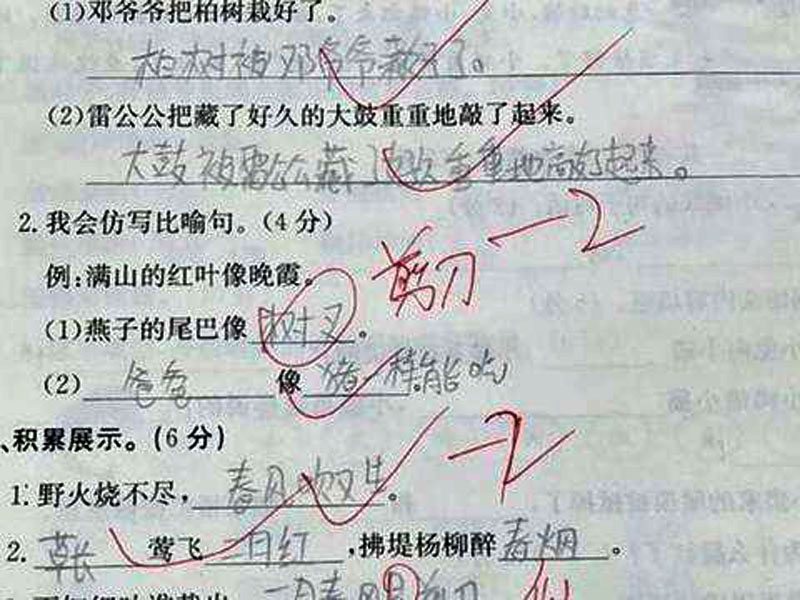 (1)邓爷爷把柏树栽好了。
柏树被邓爷爷栽好了。
(2)雷公公把藏了好久的大鼓重重地敲了起来。
大鼓被雷公公藏了 重重地 起来。
2.我会仿写比喻句。(4分)
例:满山的红叶像晚霞。
剪刀 -2
(1)燕子的尾巴像树叉。
(2)爸爸像猪一样能吃
、积累展示。(6分)
-2
1.野火烧不尽,春风吹又生。
2.草长莺飞二月红,拂堤杨柳醉春烟。
二月春风 剪刀